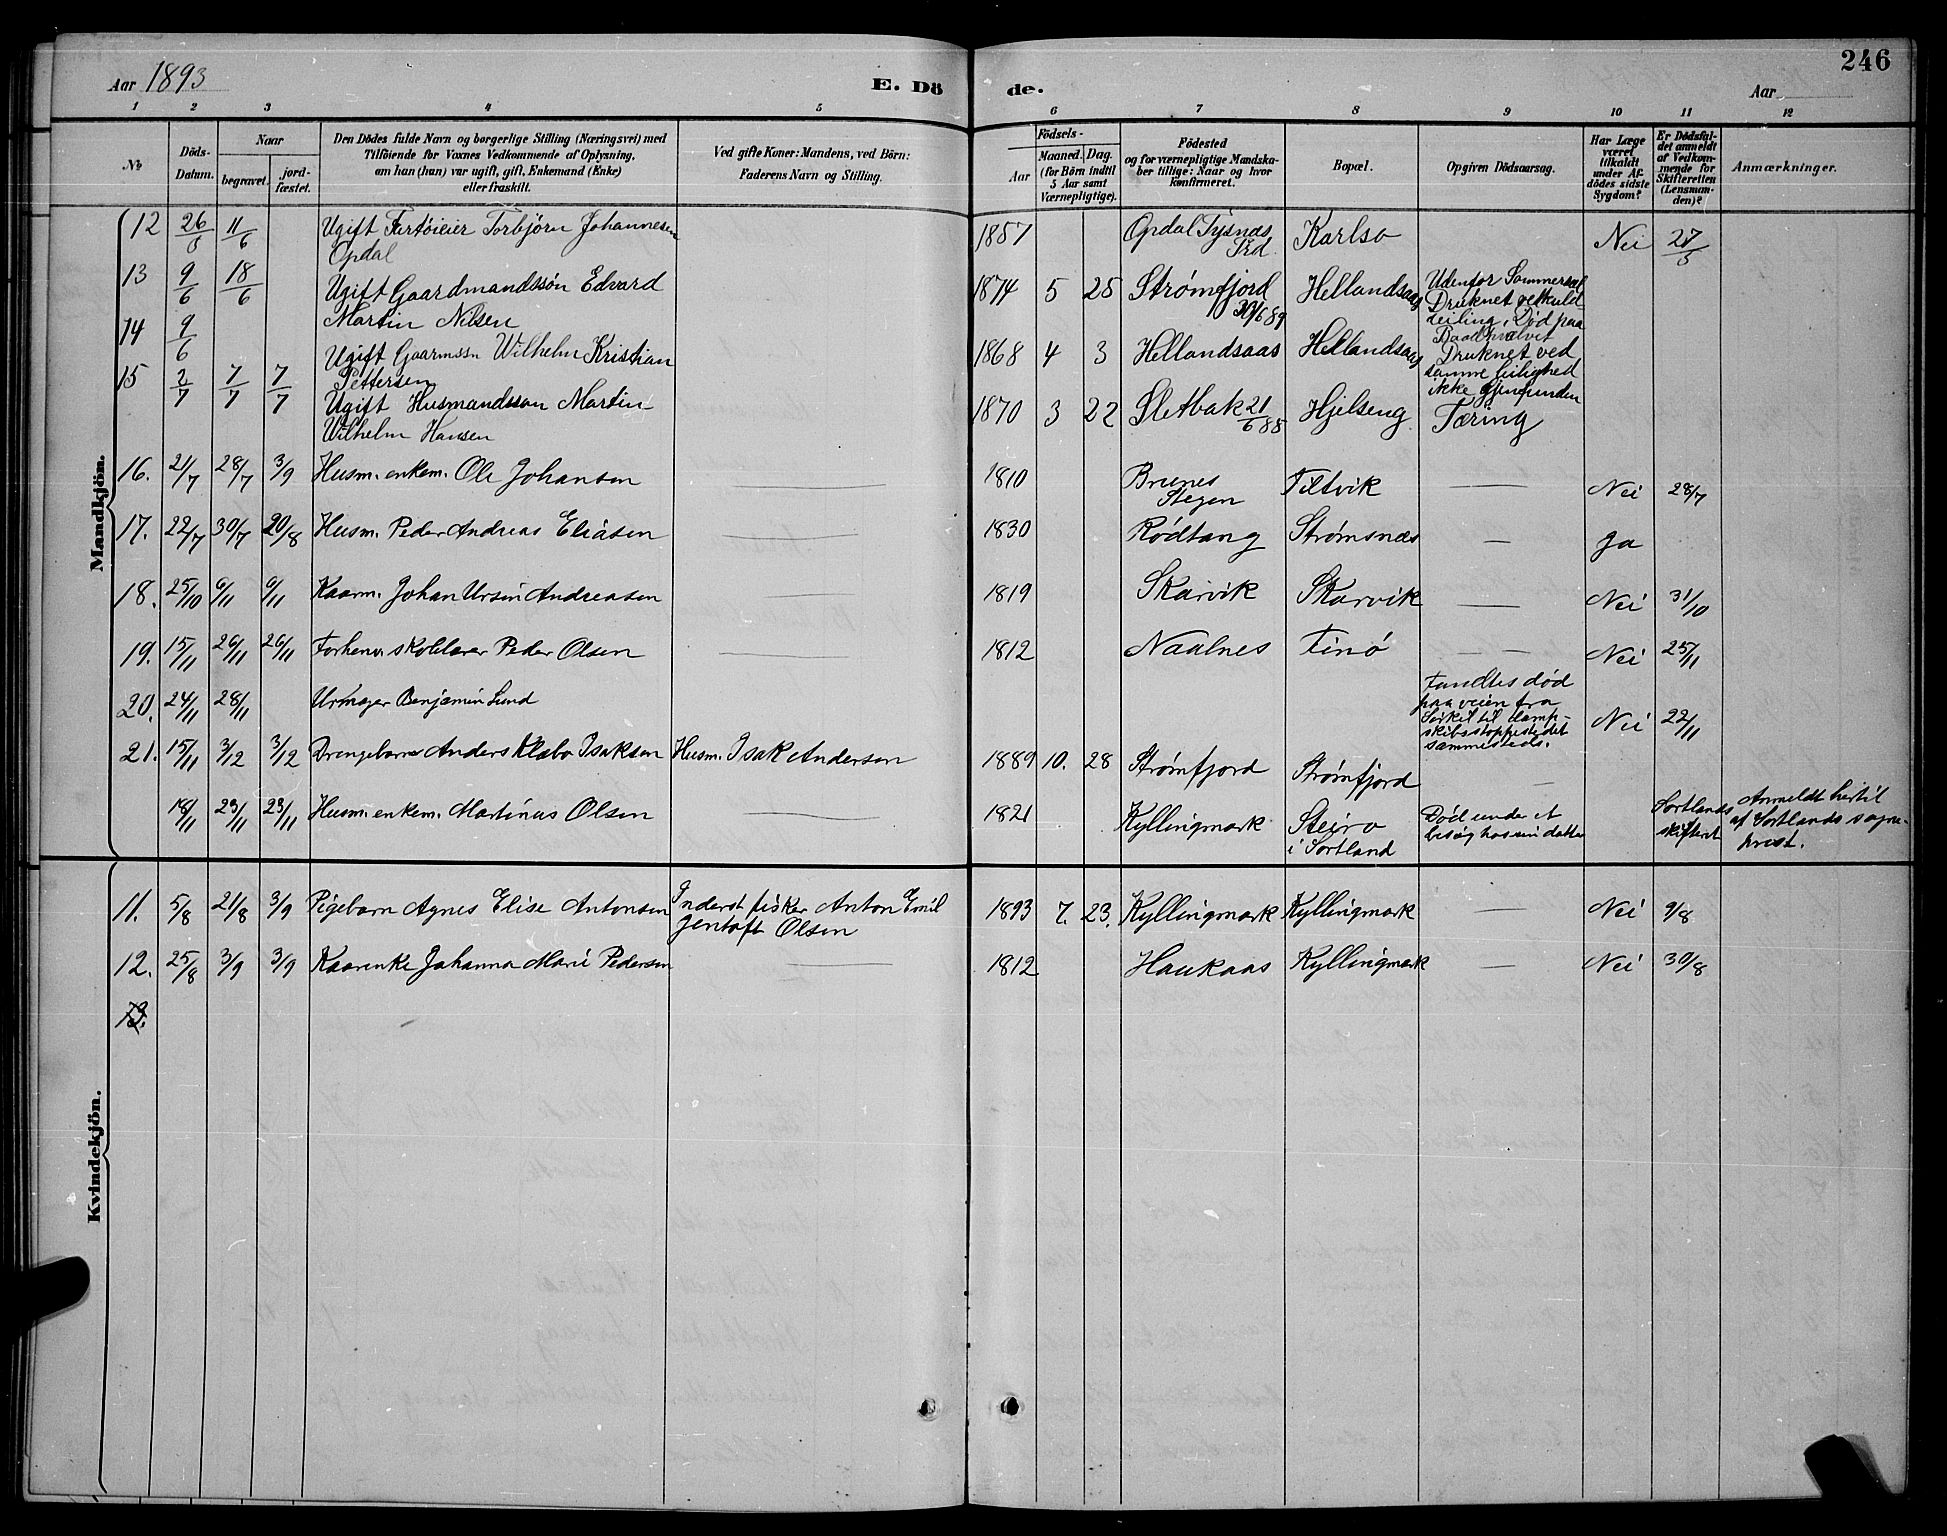 246
Aar 1893 E. Dö de. Aar
1 2 3 4 5 6 7 8 9 10 11 12
№
Döds-Datum.
Naar
begravet.
jord-fæstet.
Den Dödes fulde Navn og borgerlige Stilling (Næringsvei) med
Tilföiende for Voxnes Vedkommende af Oplysning,
om han (hun) var ugift, gift, Enkemand (Enke)
eller fraskilt.
Ved gifte Koner: Mandens, ved Börn:
Faderens Navn og Stilling.
Födsels-
Aar
Maaned. Dag.
(for Börn indtil
5 Aar samt
Værnepligtige).
Födested
og for værnepligtige Mandska-
ber tillige: Naar og hvor
konfirmeret.
Bopæl.
Opgiven Dödsaarsag.
Har Læge
været
tilkaldt
under Af-
dödes sidste
Sygdom?
Er Dödsfal-
det anmeldt
af Vedkom-
mende for
Skifteretten
(Lensman-
den)?
Anmærkninger.
Mandkjön.
12 26/5 11/6 Ugift Fartöieier Torbjörn Johannesen 1857 Opdal Tysnæs Karlsö Nei 27/5
Opdal Prd.
13 9/6 18/6 Ugift Gaardmandssön Edvard 1874 5 25 Strømfjord Hellandsaas Udenfor
Martin Nilsen 30/6 89 Druknet ved
14 9/6 Ugift Gaarmssn Wilhelm Kristian 1868 4 3 Hellandsaas Hellandsaas Druknet ved
Pettersen samme leilighed
ikke gjenfunden
15 2/7 7/7 7/7 Ugift Husmandssøn Martin 1870 3 22 Sletbak 21/6 85 Hjelseng Tæring
Wilhelm Hansen
16. 21/7 28/7 3/9 Husm. enkem. Ole Johansen 1810 Brenes Tiltvik Nei 28/7
Stegen
17. 22/7 30/7 20/8 Husm. Peder Andreas Eliasen 1830 Rödtang Strömsnæs Ja
18. 25/10 6/11 6/11 Kaarm. Johan Ursin Andreasen 1819 Skarvik Skarvik Nei 31/10
19. 15/11 26/11 26/11 Forhenv. skolelærer Peder Olsen 1812 Naalnes Finö Nei 25/11
20. 24/11 28/11 Urmager Benjamin Lund Fandtes død
paa veien fra
til damp-
skibsstoppestedet
sammesteds. Nei 22/11
21. 15/11 3/12 3/12 Drengebarn Anders Klæbo Isaksen Husm. Isak Andersen 1889 10. 28 Strømfjord Strømfjord
18/11 23/11 23/11 Husm. enkem. Martinus Olsen 1821 Kyllingmark Steiro Død under et Sortlands Anmeldt hertil
i Sortland besøg hos sin datter skifteret af Sortlands sogne-
prest.
Kvindekjön.
11. 5/8 21/8 3/9 Pigebarn Agnes Elise Antonsen Inderst fisker Anton Emil 1893 7. 23. Kyllingmark Kyllingmark Nei 9/8
Jentoft Olsen
12. 25/8 3/9 3/9 Kaarenke Johanna Marie Pedersen 1812 Haukaas Kyllingmark Nei 30/8
13.